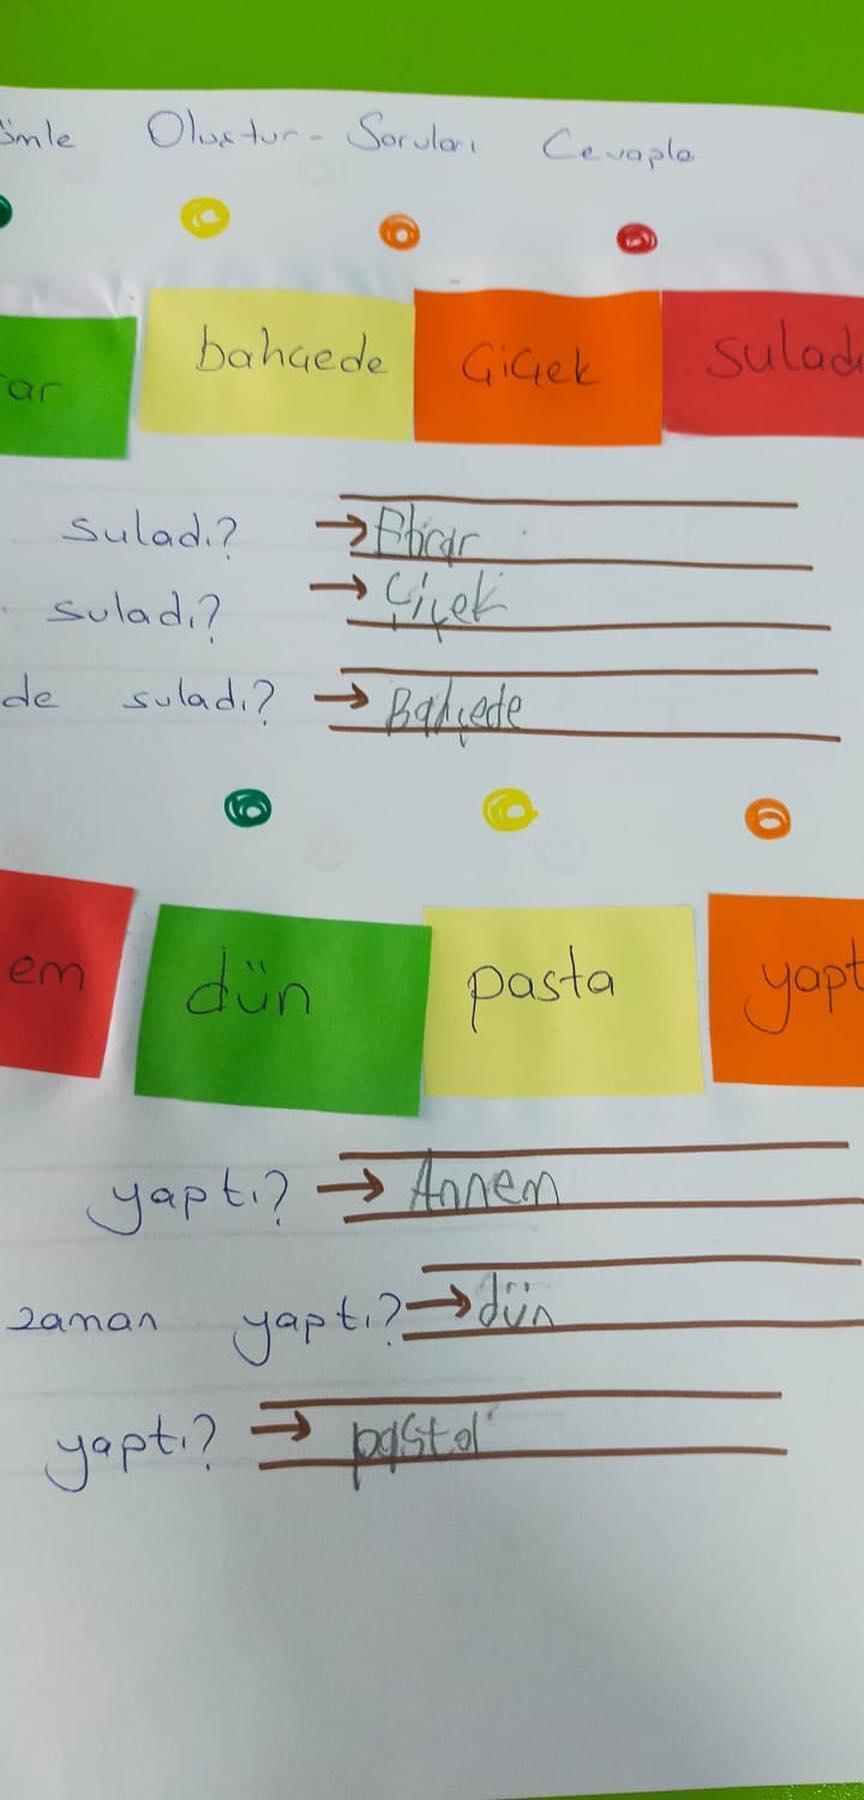 ümle Oluştur - Soruları Cevapla
ar bahçede Çiçek suladı
suladı? → Ebrar
suladı? → Çiçek
de suladı? → Bahçede
em dün pasta yapt
yaptı? → Annem
zaman yaptı? → dün
yaptı? → pasta